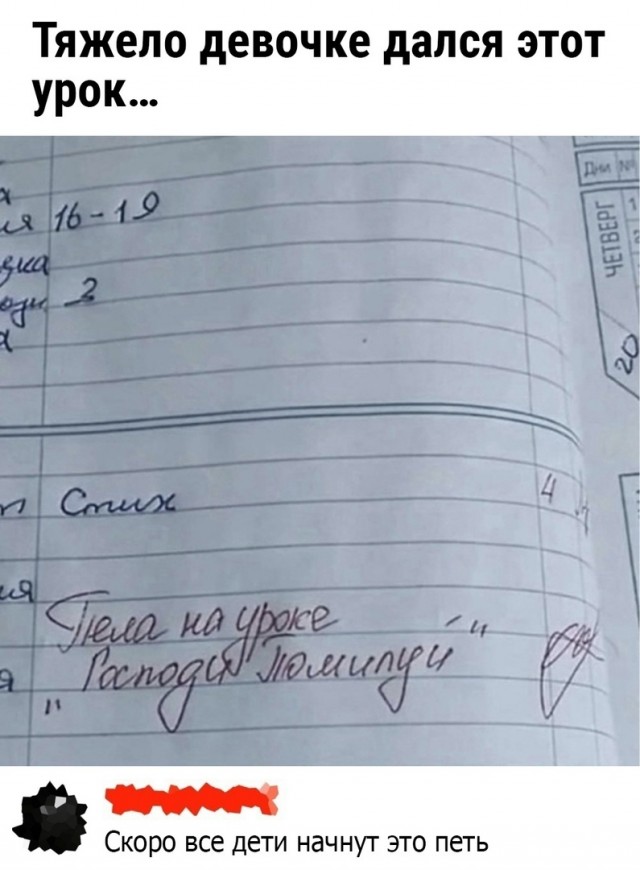 Тяжело девочке дался этот
урок...
Дни №
ЧЕТВЕРГ
1
20
16-19
2
Стих 4
Пела на уроке
"Господи Помилуй"
Скоро все дети начнут это петь